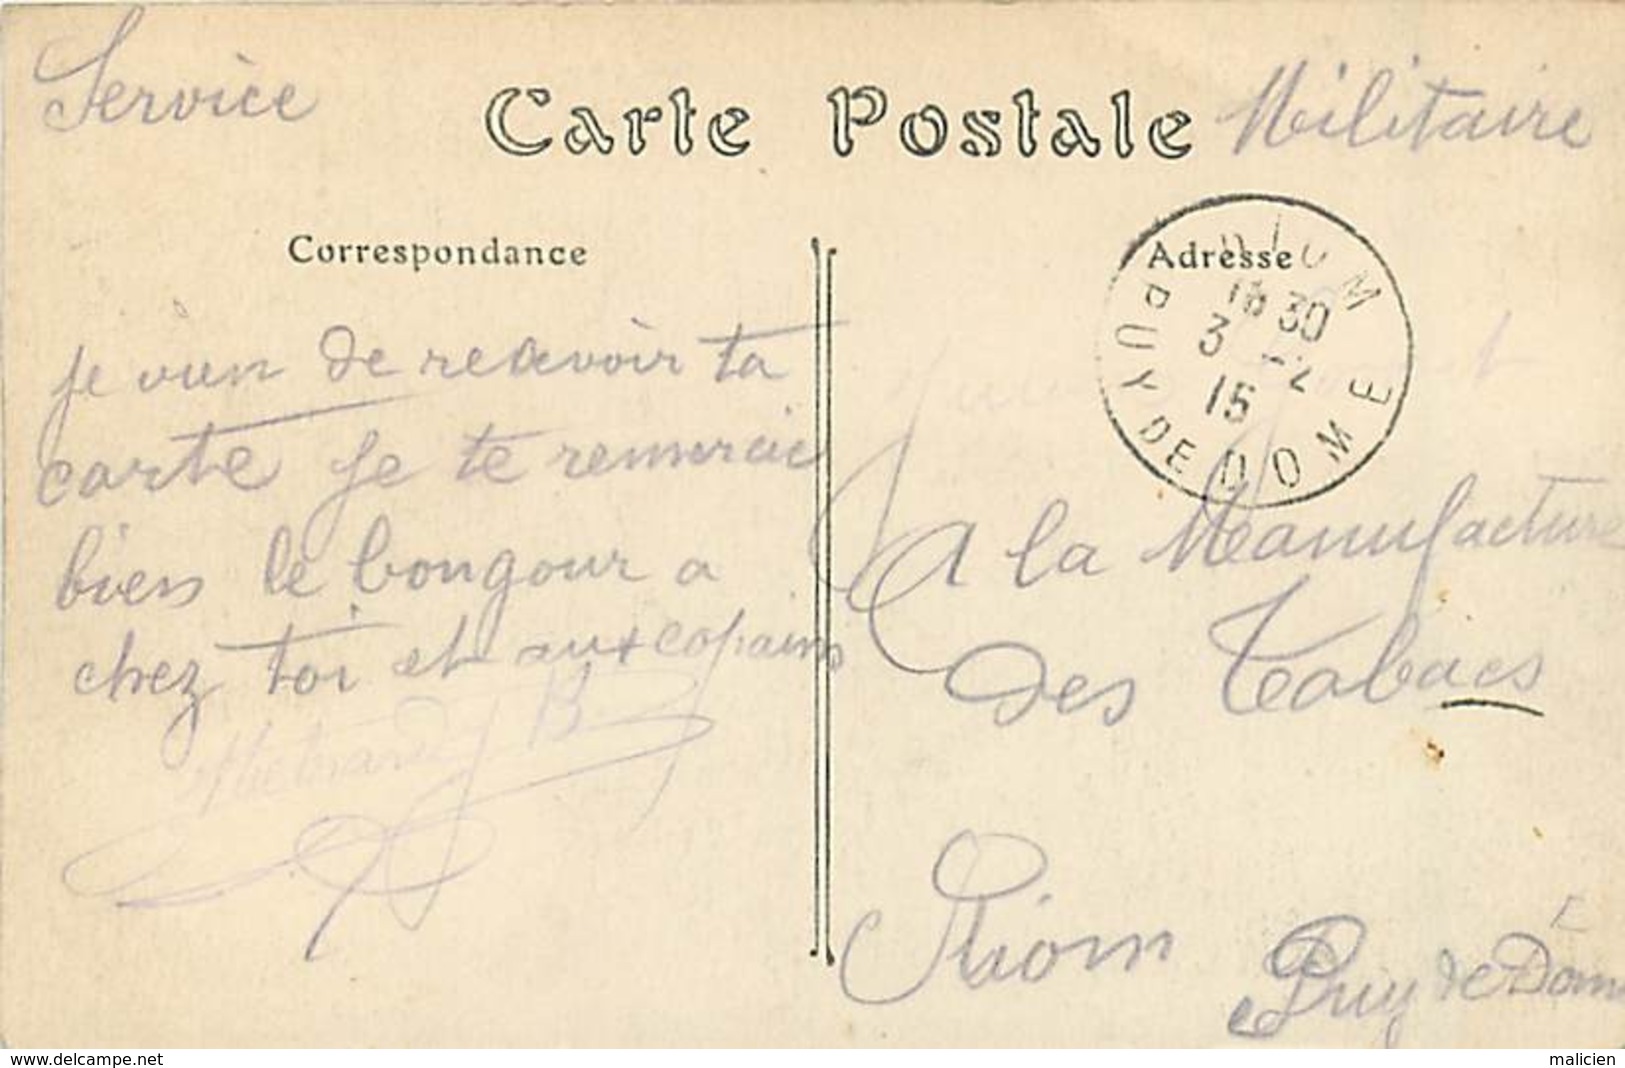 Service
Carte Postale
Militaire
Correspondance
Adresse
RIOM
16 30
3 - 2
15
PUY DE DOME
je vien de recevoir ta
carte je te remercie
bien le bongour a
chez toi et aux copains
A la Manufacture
Des Tabacs
Riom
Puy de Dome
www.delcampe.net
malicien